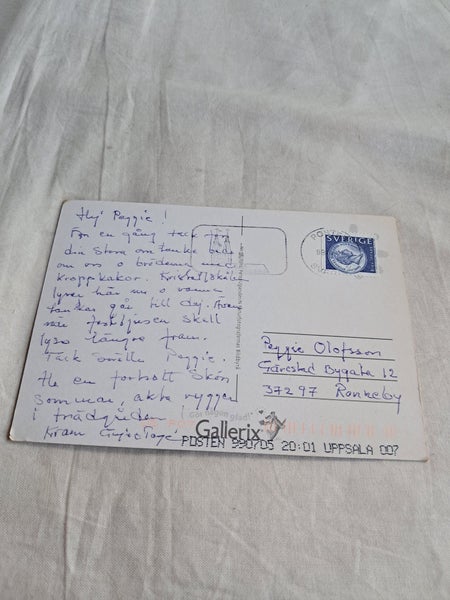 Hej Peggie!
Än en gång tack för
din stora omtanke både
om oss o bröderna med
kroppkakor.
lyser här nu o varma
tankar går till dej. Även
när festljusen skall
lysa längre fram.
Tack snälla Peggie.
Ha en fortsatt skön
Sommar, akta ryggen
i trädgården
Kram
"Gör någon glad!"
Gallerix
SVERIGE
Peggie Olofsson
Gärestad Bygata 12
372 97 Ronneby
POSTEN 990705 20:01 UPPSALA 007